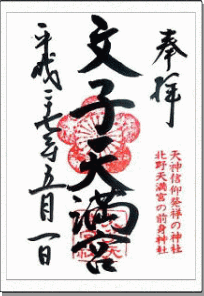 奉拝
天神信仰発祥の神社
北野天満宮の前身神社
文子天満宮
平成二十七年五月一日